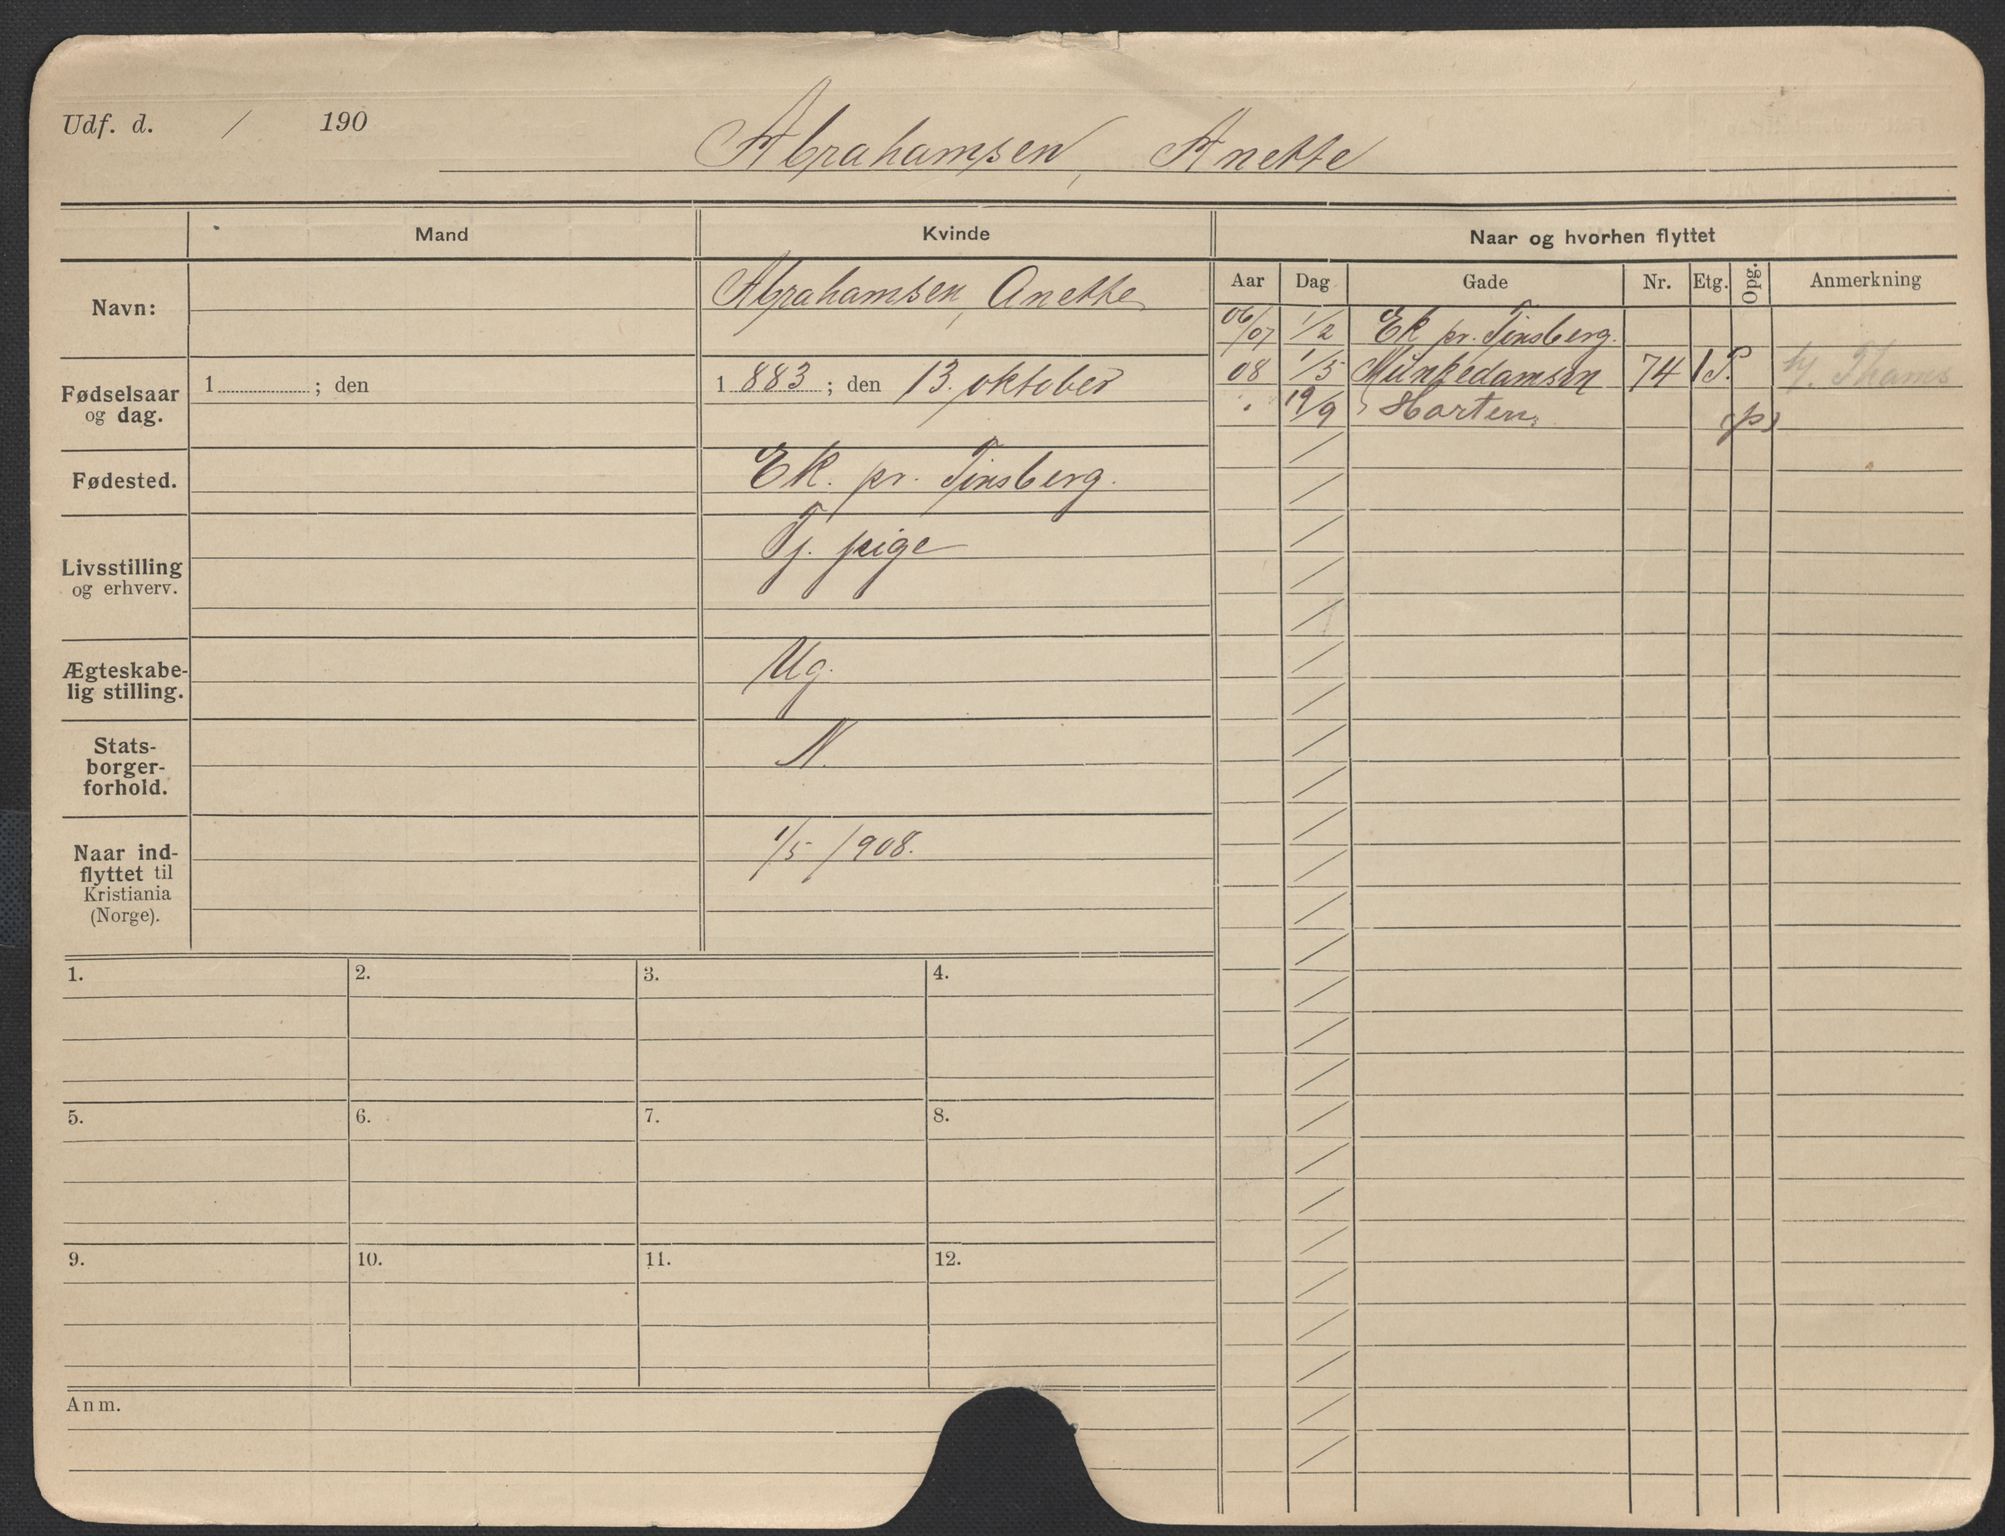 Udf. d. / 190
Abrahamsen, Anette
Mand Kvinde Naar og hvorhen flyttet
Aar Dag Gade Nr. Etg. Opg. Anmerkning
Navn: Abrahamsen, Anette
06/07 1/2 Ek pr. Tinsberg.
08 1/5 Munkedamsvn 74 1 P. H. Thams
" 19/9 Horten.
Fødselsaar
og dag.
1 ; den 1 883 ; den 13. oktober
Fødested. Ek. pr. Tinsberg.
Livsstilling
og erhverv.
Tj. pige
Ægteskabe-
lig stilling.
Ug.
Stats-
borger-
forhold.
N.
Naar ind-
flyttet til
Kristiania
(Norge).
1/5 1908.
1. 2. 3. 4.
5. 6. 7. 8.
9. 10. 11. 12.
Anm.